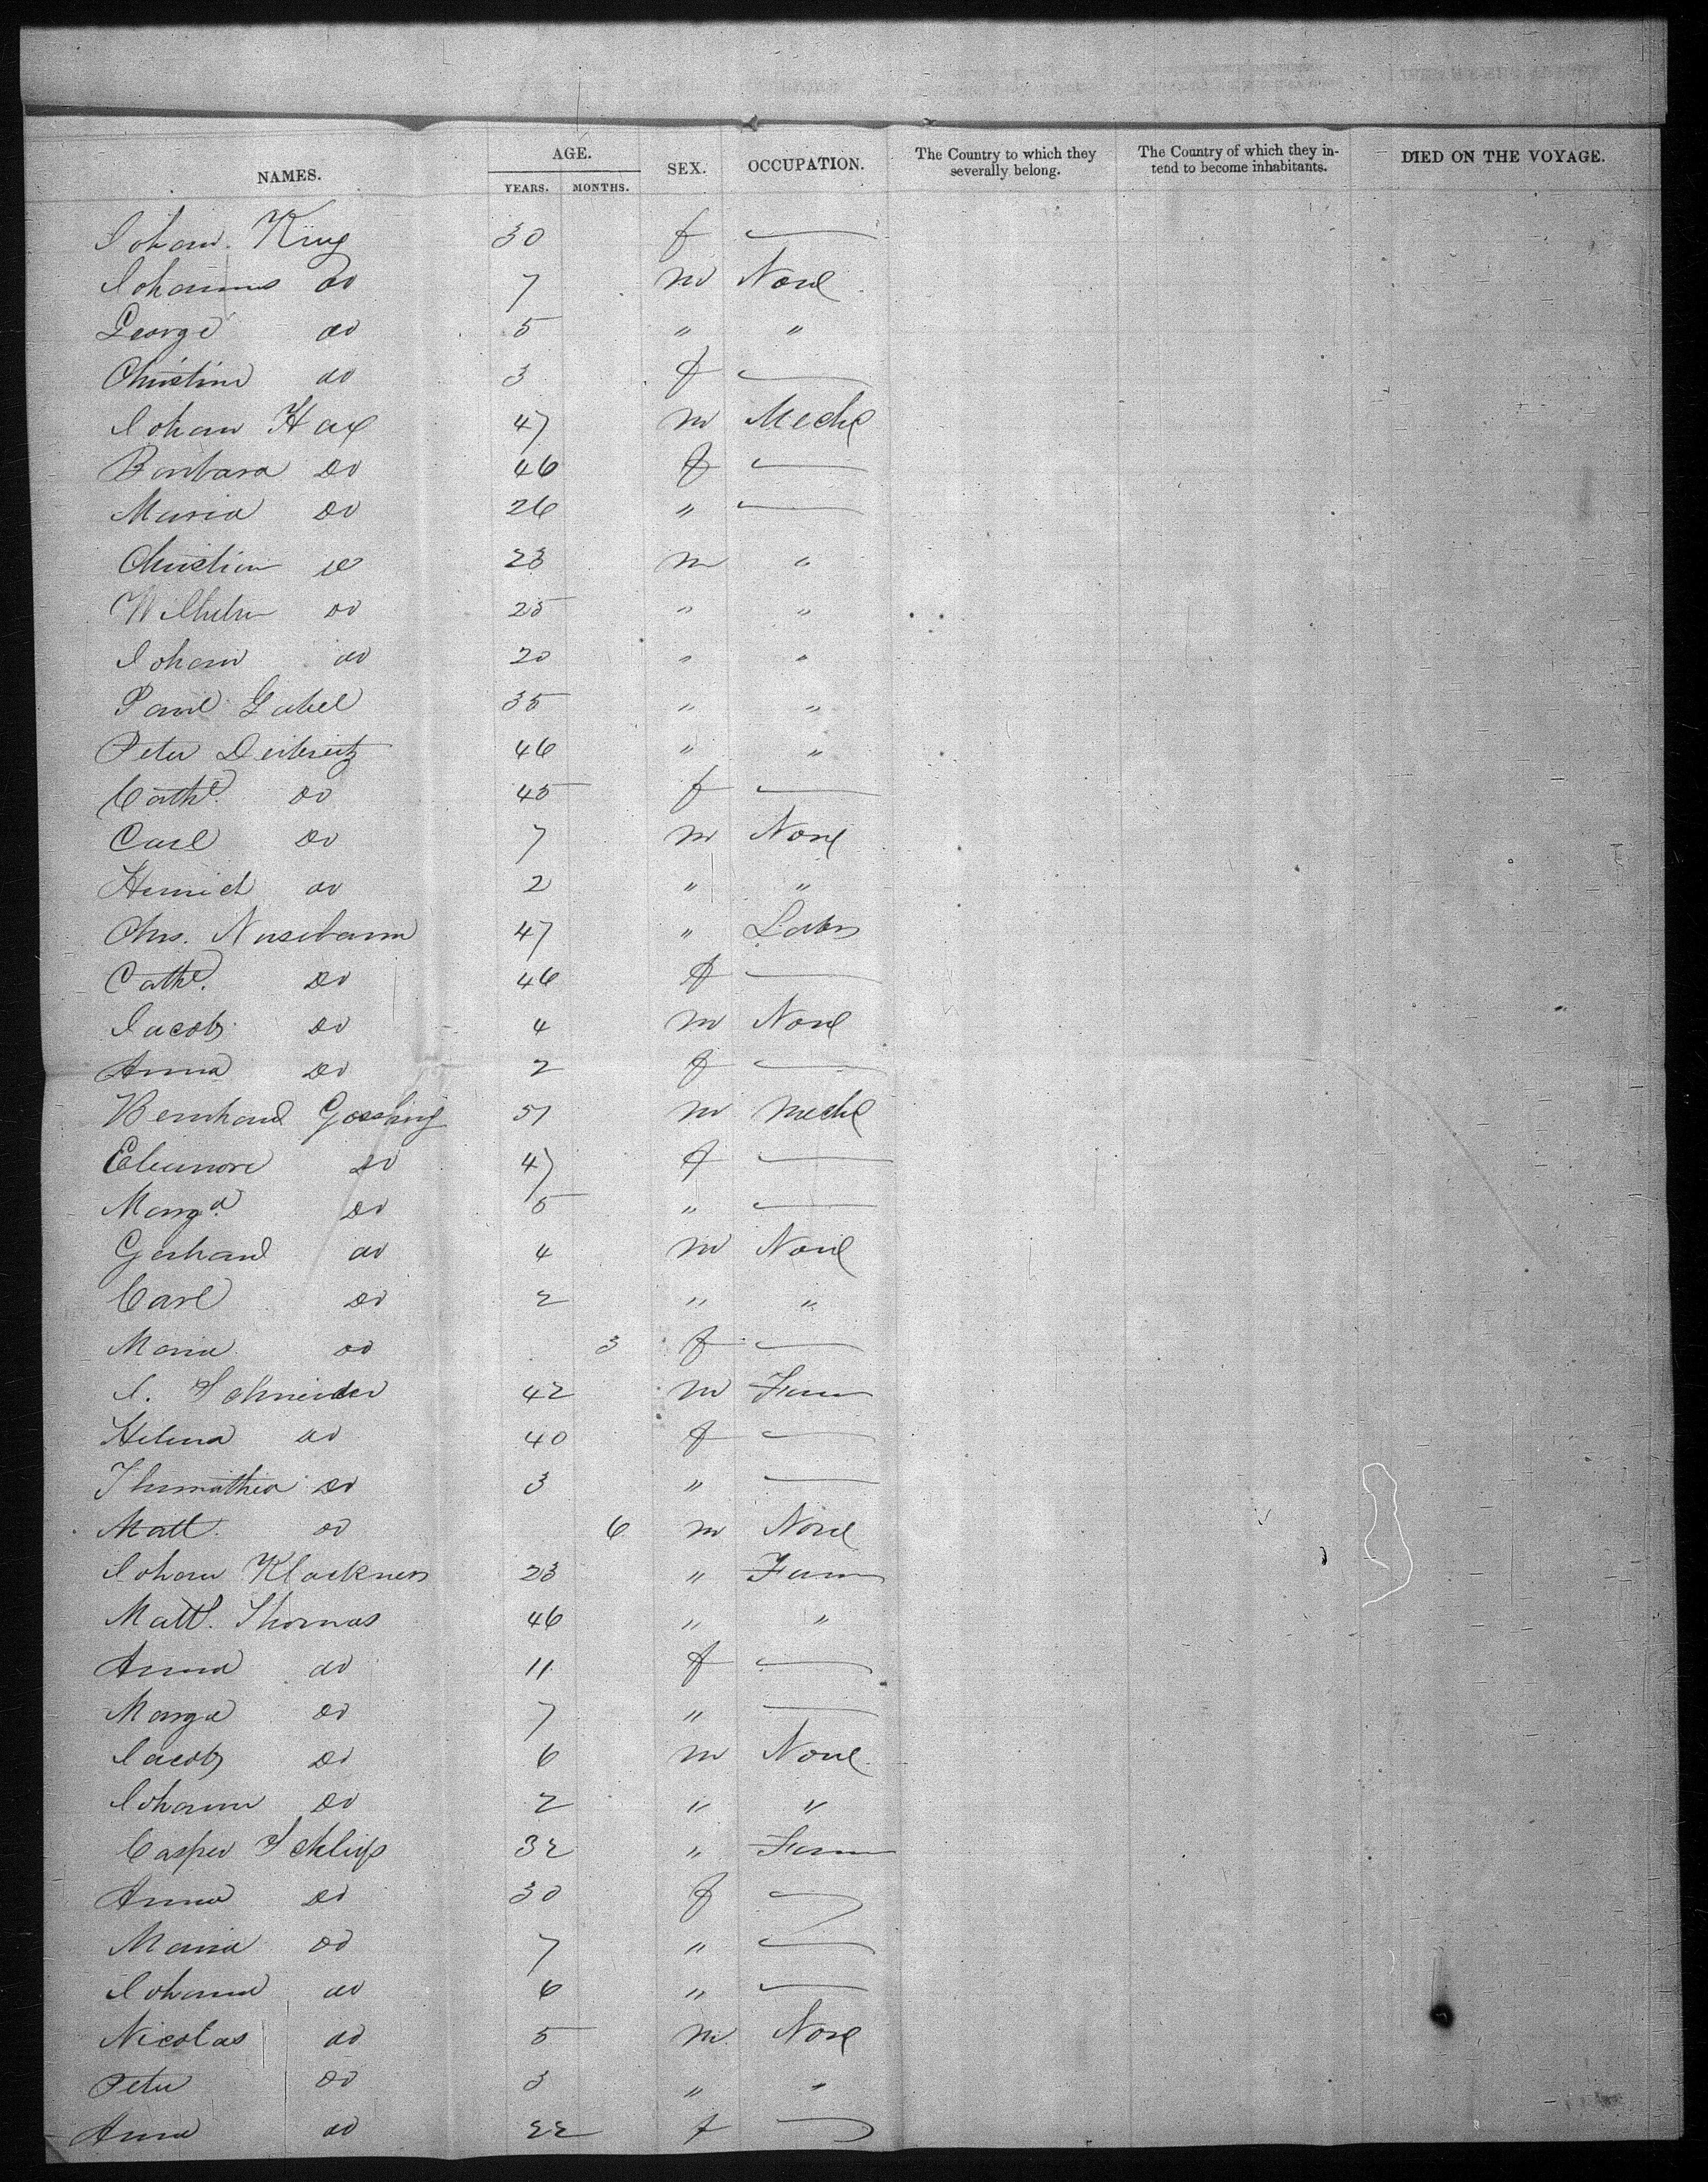 NAMES. AGE. SEX. OCCUPATION. The Country to which they severally belong. The Country of which they intend to become inhabitants. DIED ON THE VOYAGE.
YEARS. MONTHS.
Johann Krug 30 f —
Johannes do 7 m None
George do 5 " "
Christine do 3 f —
Johann Hax 47 m Mechc
Barbara Do 46 f —
Maria Do 26 " —
Christian do 23 m "
Wilhelm Do 25 " "
Johann do 20 " "
Paul Gabel 35 " "
Peter 46 " "
Cathe. Do 45 f —
Carl Do 7 m None
Heinrich do 2 " "
Chrs. Nusebaum 47 " Labr
Cathe. Do 46 f —
Jacob Do 4 m None
Anna Do 2 f —
Bernhard Gosshing 51 m mechc
Eleanore Do 47 f —
Marga. Do 5 " —
Gerhard do 4 m None
Carl Do 2 " "
Maria do 3 f —
J. Schneider 42 m Farm
Helena do 40 f —
Do 3 " —
Matt. do 6 m None
Johann Klackner 23 " Farm
Matt. Thomas 46 " "
Anna do 11 f —
Marga Do 7 " —
Jacob Do 6 m None
Johann Do 2 " "
Casper Schlips 32 " Farm
Anna Do 30 f —
Maria Do 7 " —
Johanna do 6 " —
Nicolas do 5 m None
Peter Do 3 " "
Anna do 22 f —